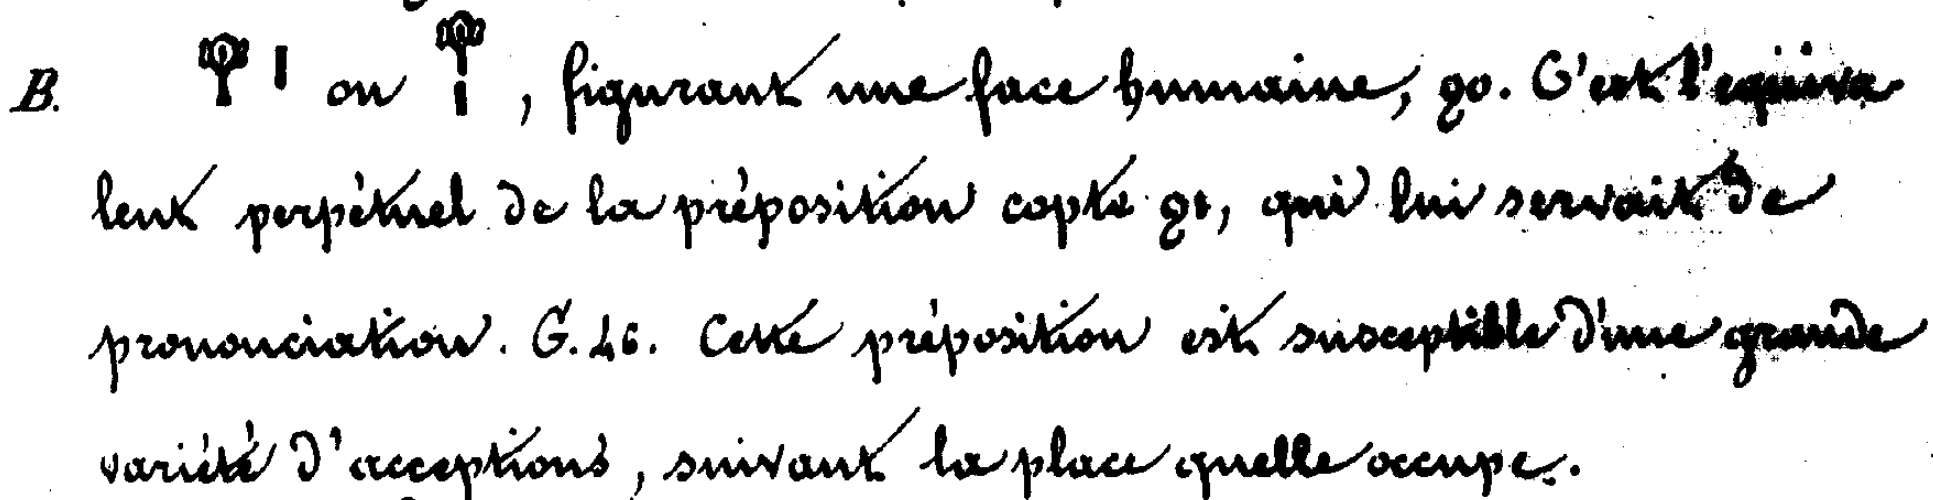 B. 𓁷 𓏤 ou 𓁷𓏤, figurant une face humaine, ϩⲟ. C'est l'equiva
lent perpétuel de la préposition copte ϩⲓ, qui lui servait de
prononciation. G. 46. Cette préposition est susceptible d'une grande
variété d'acceptions, suivant la place quelle occupe.